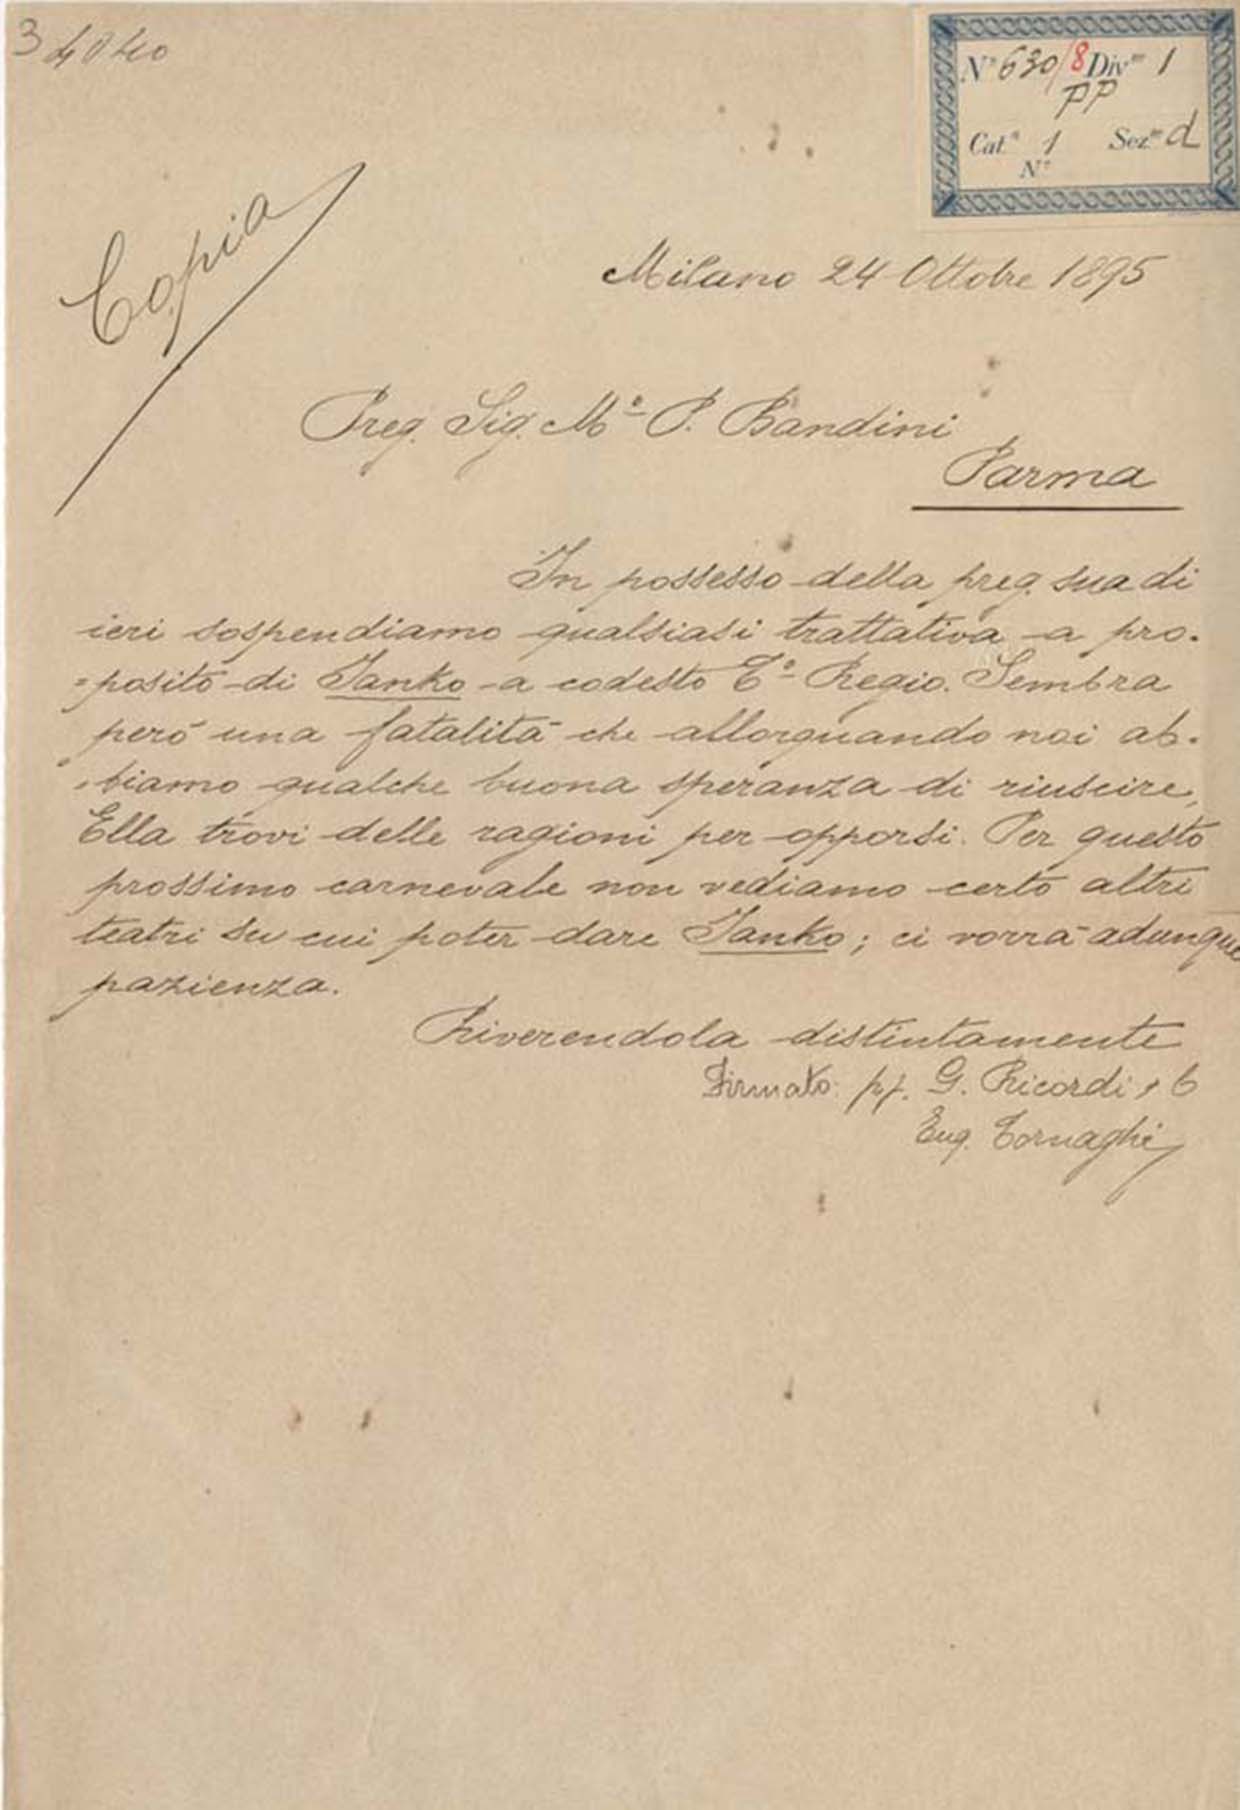 3
N° 630/8 Div.ne 1
PP
Cat.a 1 Sez.ne d
N°
Copia
Milano 24 Ottobre 1895
Preg. Sig. M.o P. Bandini
Parma
In possesso della preg. sua di
ieri sospendiamo qualsiasi trattativa a pro-
=posito di Janko a codesto T.o Regio. Sembra
però una fatalità che allorquando noi ab-
-biamo qualche buona speranza di riuscire,
Ella trovi delle ragioni per opporsi. Per questo
prossimo carnevale non vediamo certo altri
teatri su cui poter dare Janko; ci vorrà adunque
pazienza.
Riverendola distintamente
Firmato: pp. G. Ricordi e C
Eug. Tornaghi